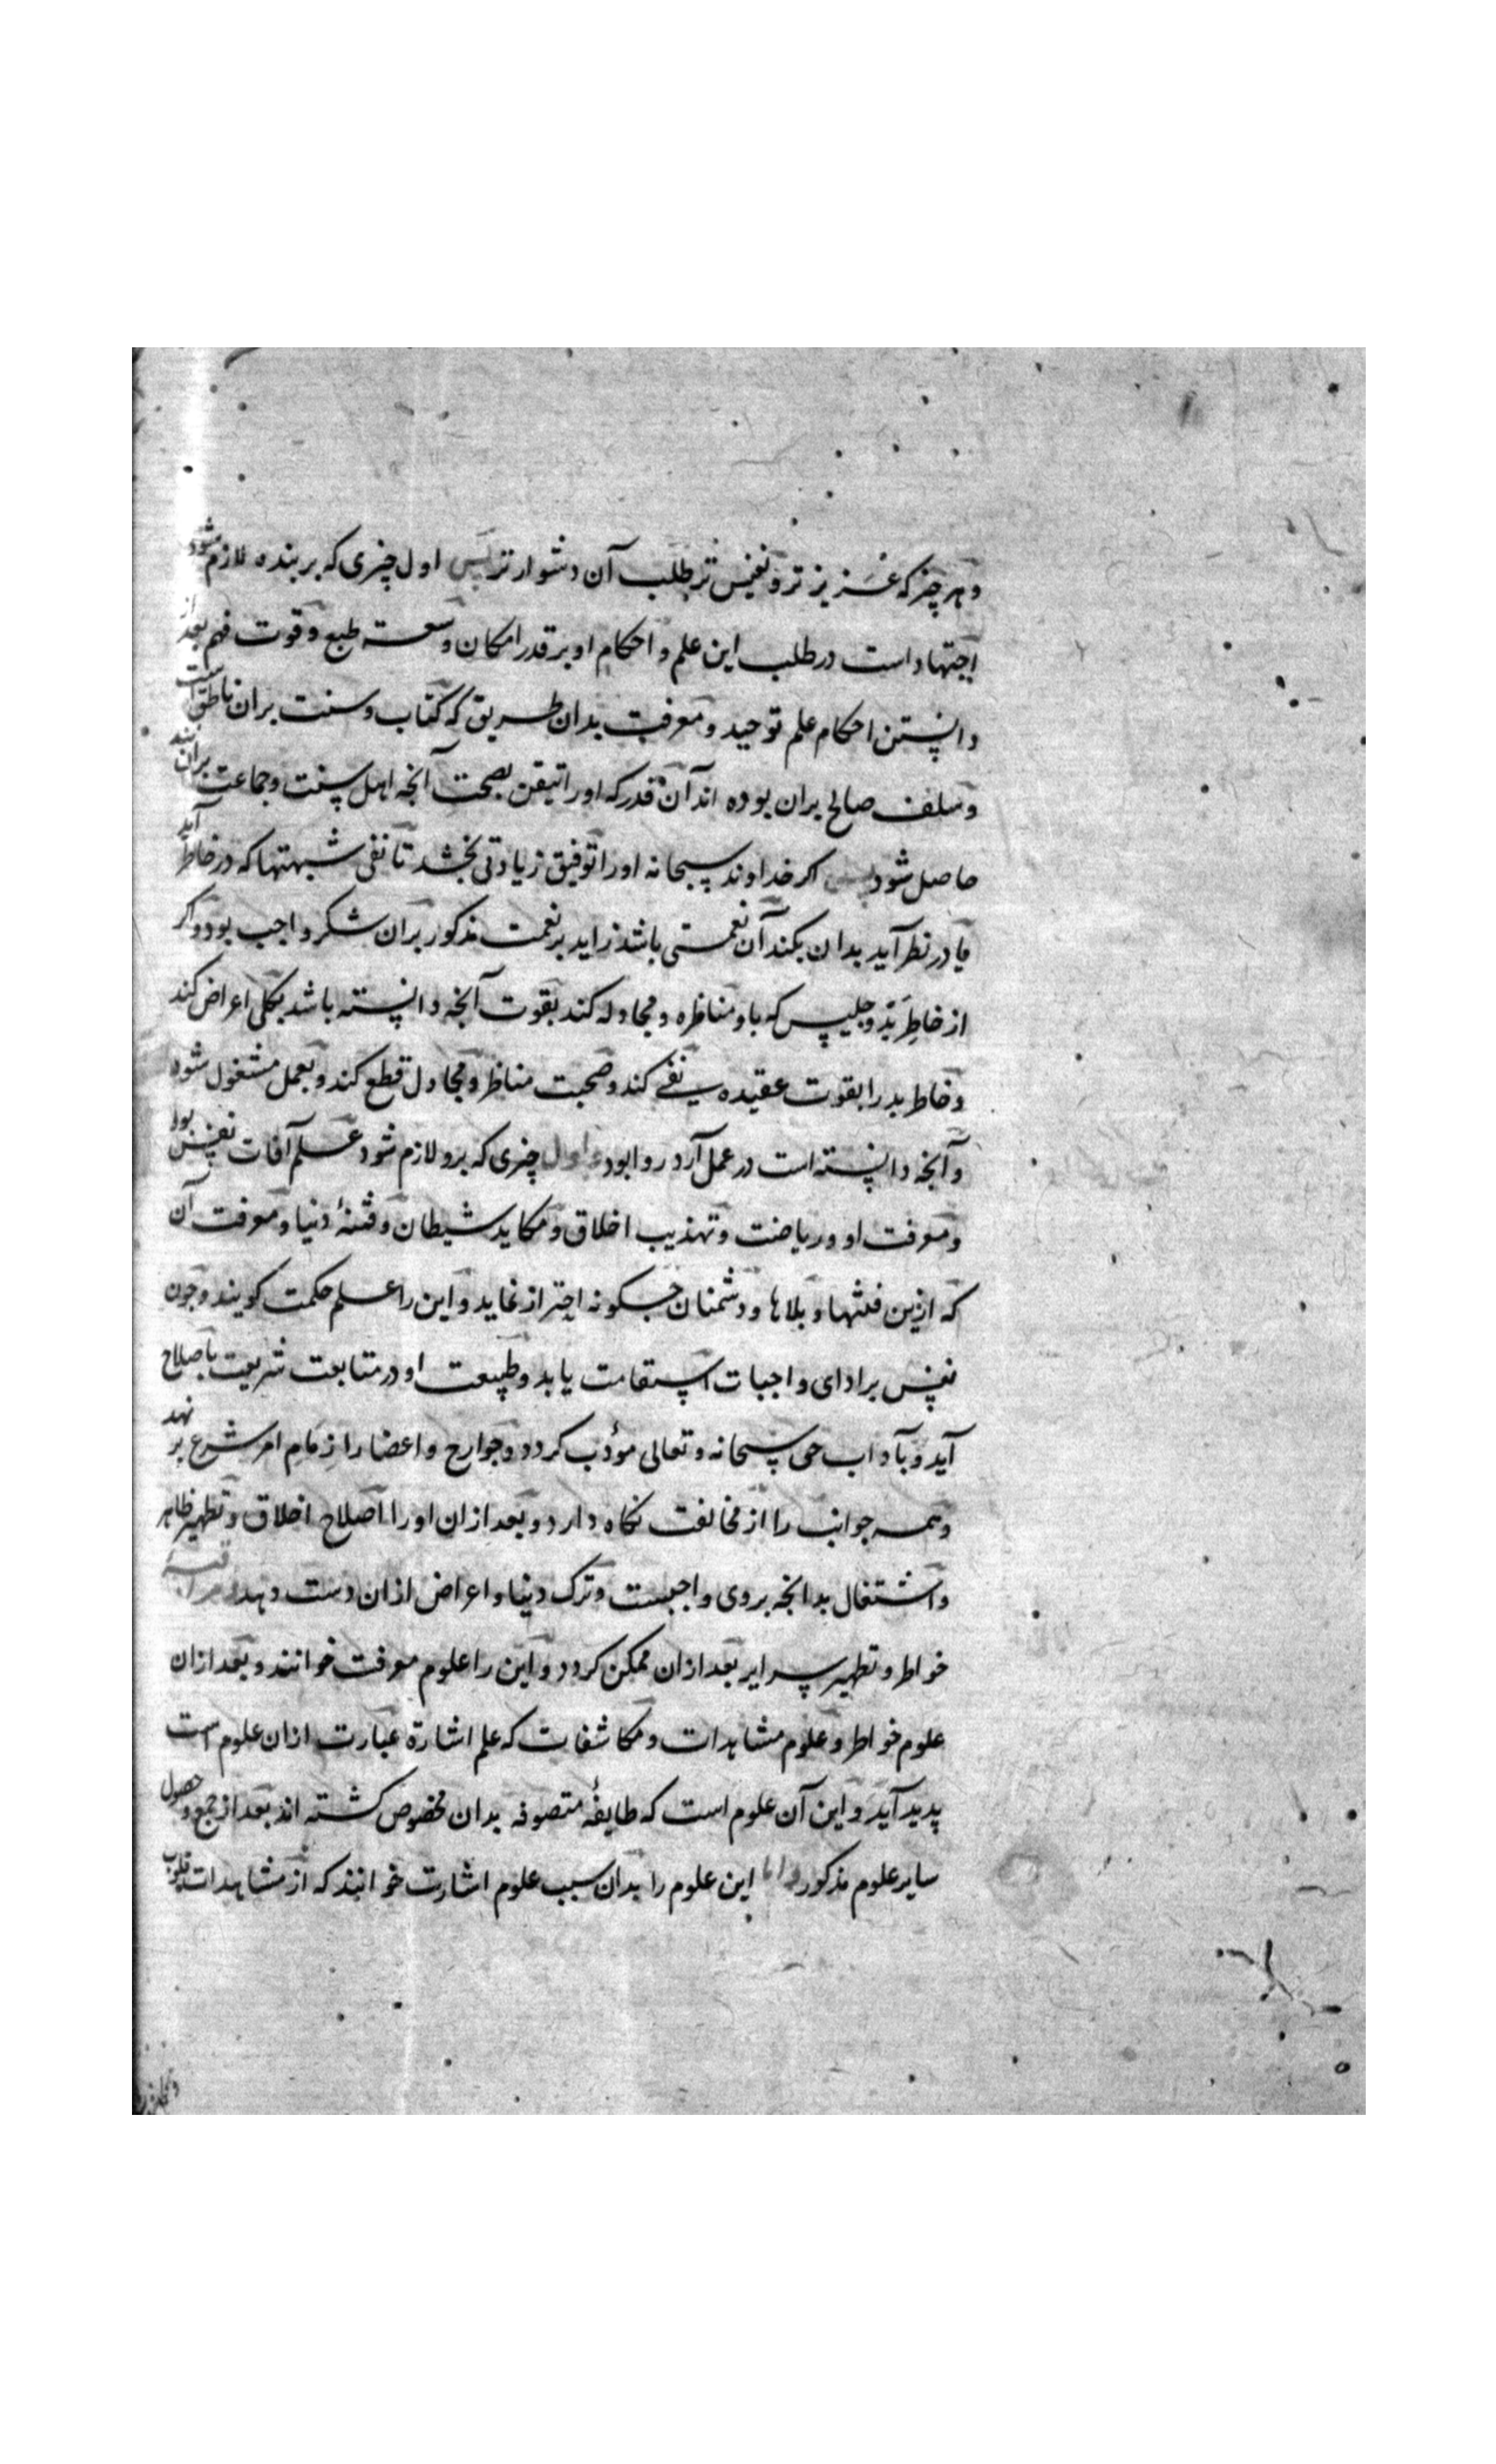 و هر چیز که عزیز تر و نفیس تر طلب آن دشوار تر پس اول چیزی که بر بنده لازم شود
اجتهاد است در طلب این علم و احکام او بر قدر امکان و سعت طبع و قوت فهم بعد از
دانستن احکام علم توحید و معرفت بدان طریق که کتاب و سنت بران ناطق است
و سلف صالح بران بوده اند آن قدر که او را تیقن بصحت آنچه اهل سنت و جماعت برانند
حاصل شود پس اکر خداوند سبحانه او را توفیق زیادتی بخشد تا نفی شبهتها که در خاطر آید
یا در نظر آید بدان بکند آن نعمتی باشد زاید بر نعمت مذکور بران شکر واجب بود و اکر
از خاطر بد و جلیس که با او مناظره و مجادله کند بقوت آنچه دانسته باشد بکلی اعراض کند
و خاطر بد را بقوت عقیده نفی کند و صحبت مناظر و مجادل قطع کند و بعمل مشغول شود
و آنچه دانسته است در عمل آرد روا بود و اول چیزی که برو لازم شود علم آفات نفس بود
و معرفت او و ریاضت و تهذیب اخلاق و مکاید شیطان و فتنهٔ دنیا و معرفت آن
که ازین فتنها و بلاها و دشمنان چکونه احتراز نماید و این را علم حکمت کویند و چون
نفس بر ادای واجبات استقامت یابد و طبیعت او در متابعت شریعت باصلاح
آید و بآداب حق سبحانه و تعالی مؤدب کردد و جوارح و اعضا را زمام امر شرع بر نهد
و همه جوانب را از مخالفت نکاه دارد و بعد ازان او را اصلاح اخلاق و تطهیر ظاهر
و اشتغال بدانچه بروی واجبست و ترک دنیا و اعراض ازان دست دهد
خواطر و تطهیر سرایر بعد ازان ممکن کردد و این را علوم معرفت خوانند و بعد ازان
علوم خواطر و علوم مشاهدات و مکاشفات که علم اشارة عبارت ازان علوم است
پدید آید و این آن علوم است که طایفهٔ متصوفه بدان مخصوص کشته اند بعد از جمع و حصول
سایر علوم مذکور و اما این علوم را بدان سبب علوم اشارت خوانند که از مشاهدات قلوب